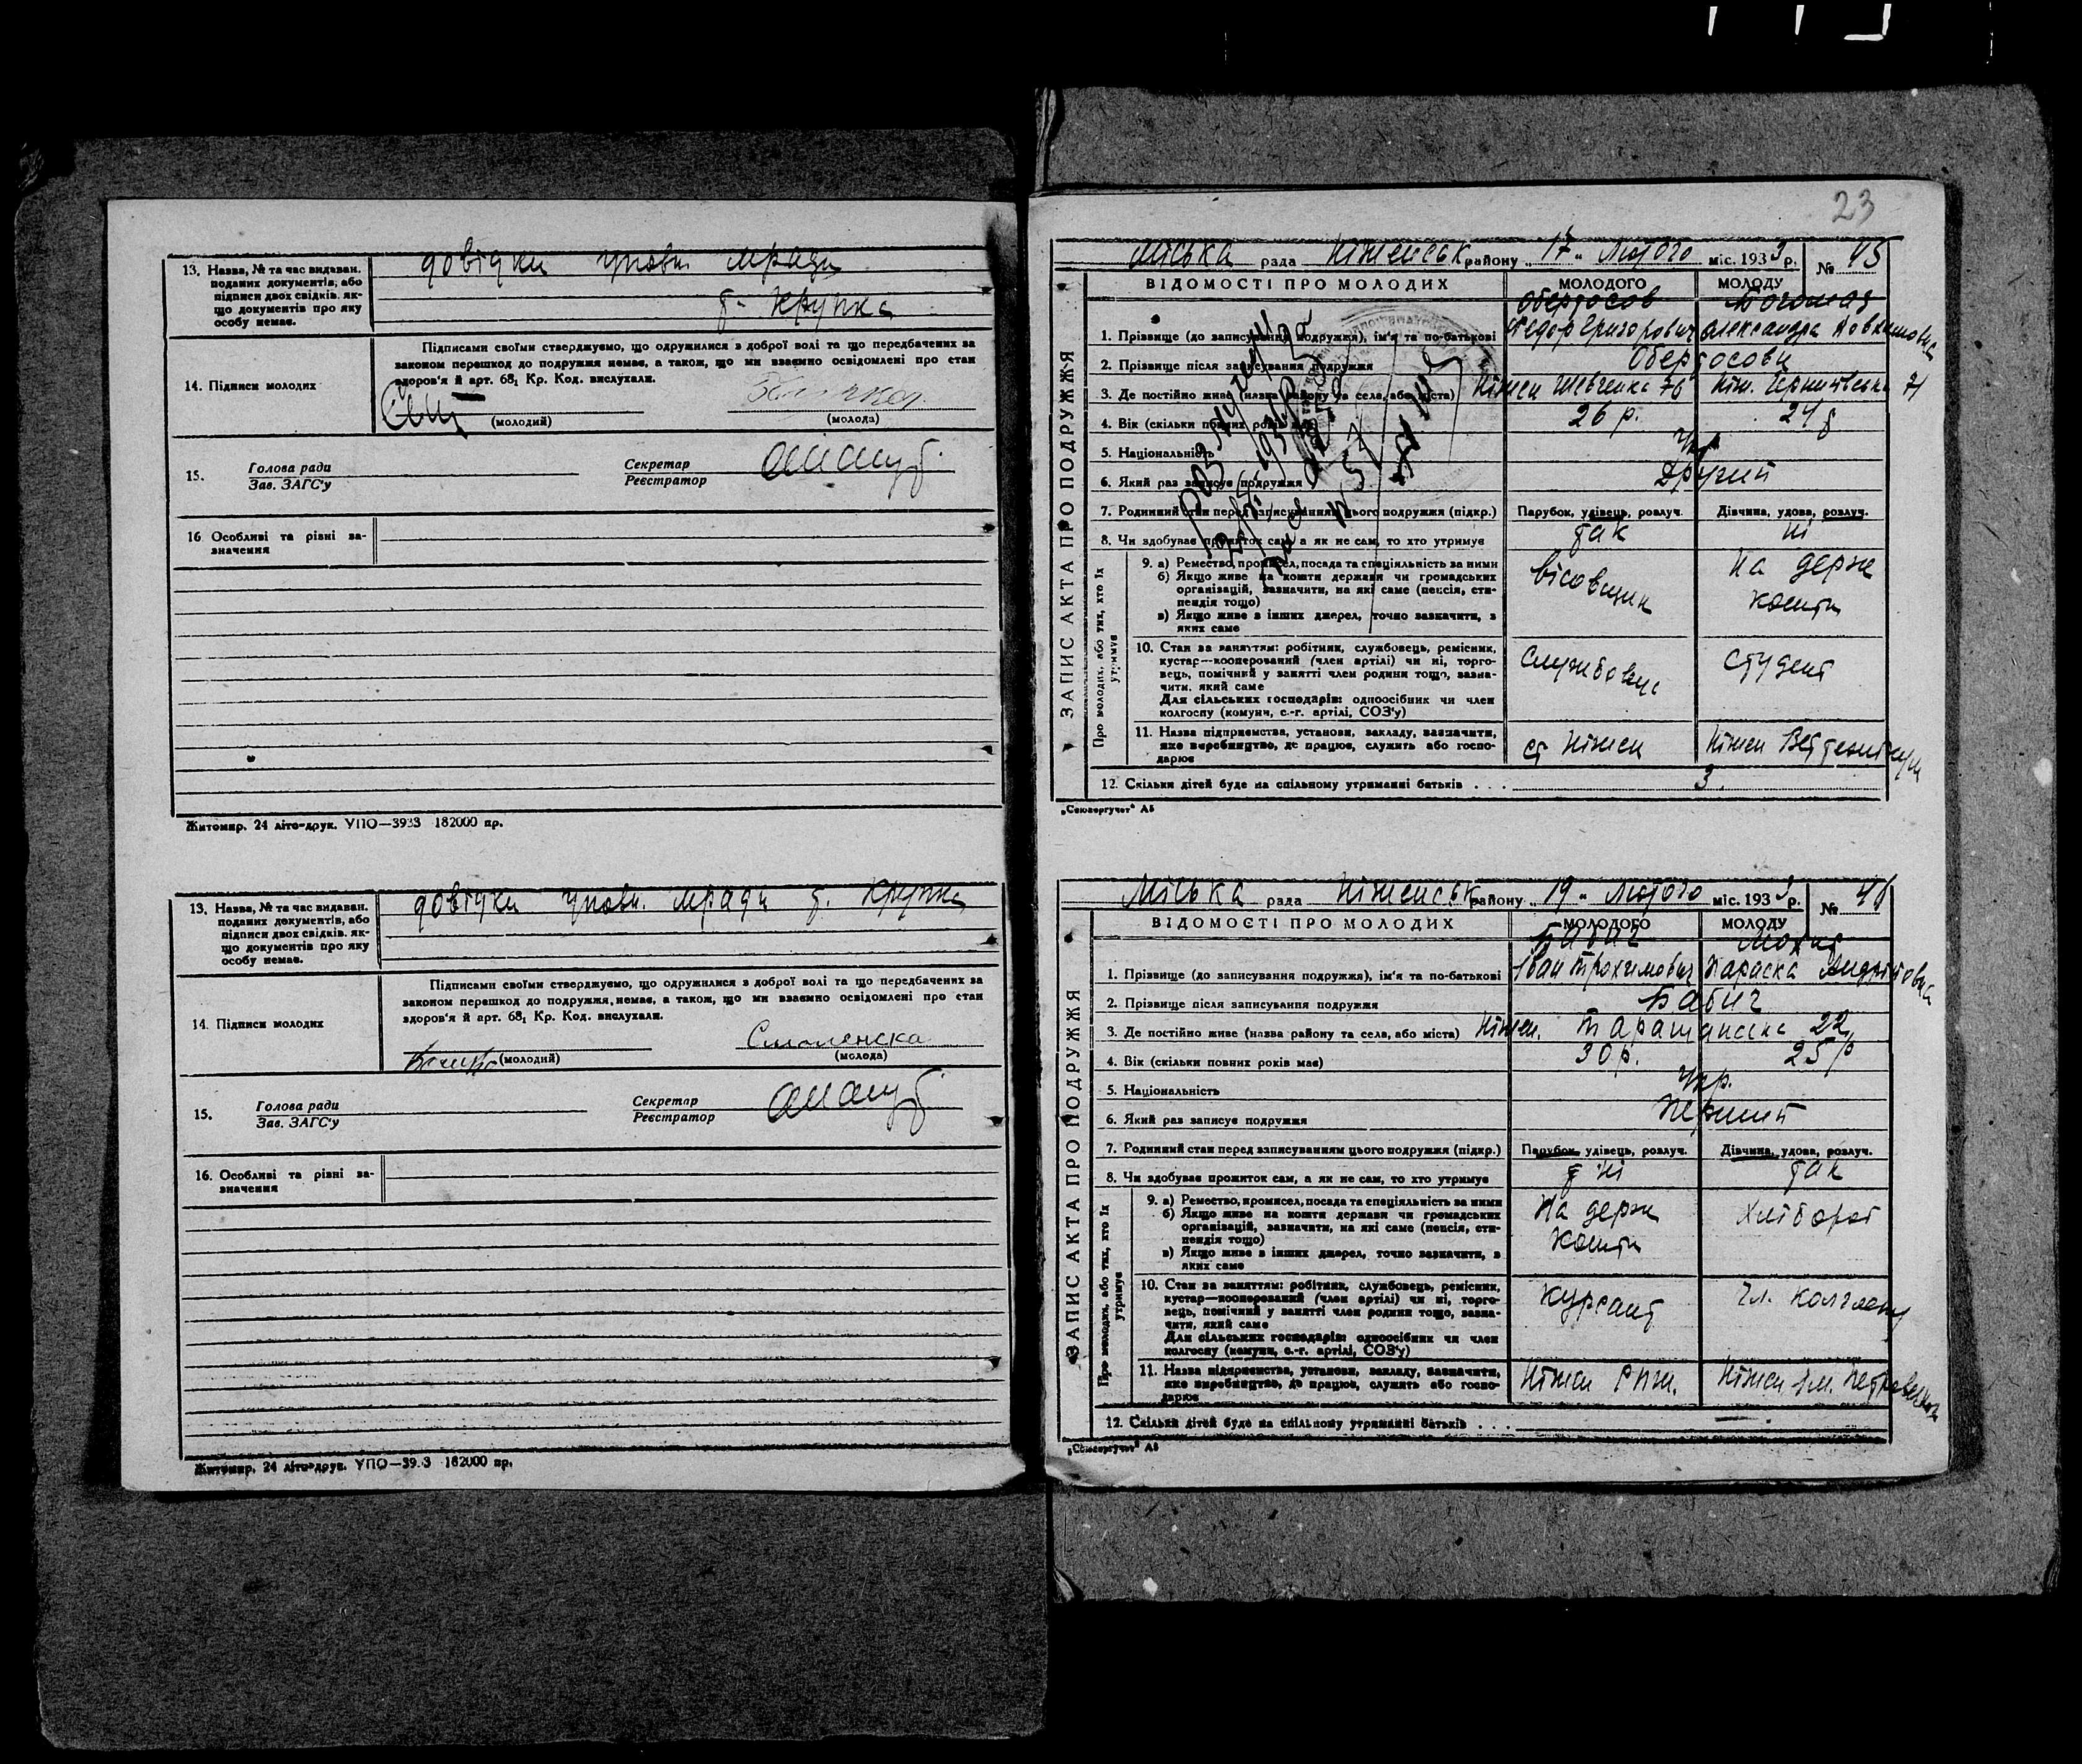 13. Назва, № та час видаван. поданих документів, або підписи двох свідків, якщо документів про яку особу немає.
довідки упов. мради
б. Крупка
Підписами своїми стверджуємо, що одружилися з доброї волі та що передбачених за
законом перешкод до подружжя немає, а також, що ми взаємно освідомлені про стан
здоров'я й арт. 68₁ Кр. Код. вислухали.
14. Підписи молодих
(молодий) (молода)
15. Голова ради Секретар
Зав. ЗАГС'у Реєстратор
16 Особливі та рівні зазначення
Житомир. 24 літо-друк. УПО—3933 182000 пр.
13. Назва, № та час видаван. поданих документів, або підписи двох свідків, якщо документів про яку особу немає.
довідки упов. мради б. Крупка
Підписами своїми стверджуємо, що одружилися з доброї волі та що передбачених за
законом перешкод до подружжя немає, а також, що ми взаємно освідомлені про стан
здоров'я й арт. 68₁ Кр. Код. вислухали.
14. Підписи молодих
Смоленска
(молодий) (молода)
15. Голова ради Секретар
Зав. ЗАГС'у Реєстратор
16. Особливі та рівні зазначення
Житомир. 24 літо-друк. УПО—39.3 182000 пр.
23
Міська рада Ніженськ району „17" Лютого міс. 1933 р. № 45
ЗАПИС АКТА ПРО ПОДРУЖЖЯ
ВІДОМОСТІ ПРО МОЛОДИХ МОЛОДОГО МОЛОДУ
1. Прізвище (до записування подружжя), ім'я та по-батькові Федор Григорович Александра
2. Прізвище після записування подружжя
3. Де постійно живе (назва району та села, або міста) Ніжен Шевченка 76 Ніж. Чернигівська 71
4. Вік (скільки повних років має) 26 р. 24 р
5. Національність Укр.
6. Який раз записує подружжя Другий
7. Родинний стан перед записуванням цього подружжя (підкр.) Парубок, удівець, розлуч. Дівчина, удова, розлуч.
8. Чи здобуває прожиток сам, а як не сам, то хто утримує так ні
Про молодих, або тих, хто їх утримує
9. а) Ремество, промисел, посада та спеціяльність за ними
б) Якщо живе на кошти держави чи громадських організацій, зазначити, на які саме (пенсія, стипендія тощо)
в) Якщо живе з інших джерел, точно зазначити, з яких саме
вісовщик На держ кошти
10. Стан за заняттям: робітник, службовець, ремісник, кустар—кооперований (член артілі) чи ні, торговець, помічний у занятті член родини тощо, зазначити, який саме
Для сільських господарів: одноосібник чи член колгоспу (комуни, с.-г. артілі, СОЗ'у)
Службовец Студент
11. Назва підприємства, установи, закладу, зазначити, яке виробництво, де працює, служить або господарює
ст Ніжен Ніжен Веттехнікум
12. Скільки дітей буде на спільному утриманні батьків . . . 3.
„Союзоргучет" А5
Міська рада Ніженськ району „19" Лютого міс. 1933 р. № 46
ЗАПИС АКТА ПРО ПОДРУЖЖЯ
ВІДОМОСТІ ПРО МОЛОДИХ МОЛОДОГО МОЛОДУ
Бабич
1. Прізвище (до записування подружжя), ім'я та по-батькові Іван Трохимович Параска Андріїовна
2. Прізвище після записування подружжя Бабич
3. Де постійно живе (назва району та села, або міста) Ніжен. Таращанська 22
4. Вік (скільки повних років має) 30 р. 25 р
5. Національність Укр.
6. Який раз записує подружжя Перший
7. Родинний стан перед записуванням цього подружжя (підкр.) Парубок, удівець, розлуч. Дівчина, удова, розлуч.
8. Чи здобуває прожиток сам, а як не сам, то хто утримує ні так
Про молодих, або тих, хто їх утримує
9. а) Ремество, промисел, посада та спеціяльність за ними
б) Якщо живе на кошти держави чи громадських організацій, зазначити, на які саме (пенсія, стипендія тощо)
в) Якщо живе з інших джерел, точно зазначити, з яких саме
На держ кошти Хлібороб
10. Стан за заняттям: робітник, службовець, ремісник, кустар—кооперований (член артілі) чи ні, торговець, помічний у занятті член родини тощо, зазначити, який саме
Для сільських господарів: одноосібник чи член колгоспу (комуни, с.-г. артілі, СОЗ'у)
Курсант Чл. колгоспу
11. Назва підприємства, установи, закладу, зазначити, яке виробництво, де працює, служить або господарює
Ніжен Ніжен
12. Скільки дітей буде на спільному утриманні батьків . . . —
„Союзоргучет" А5